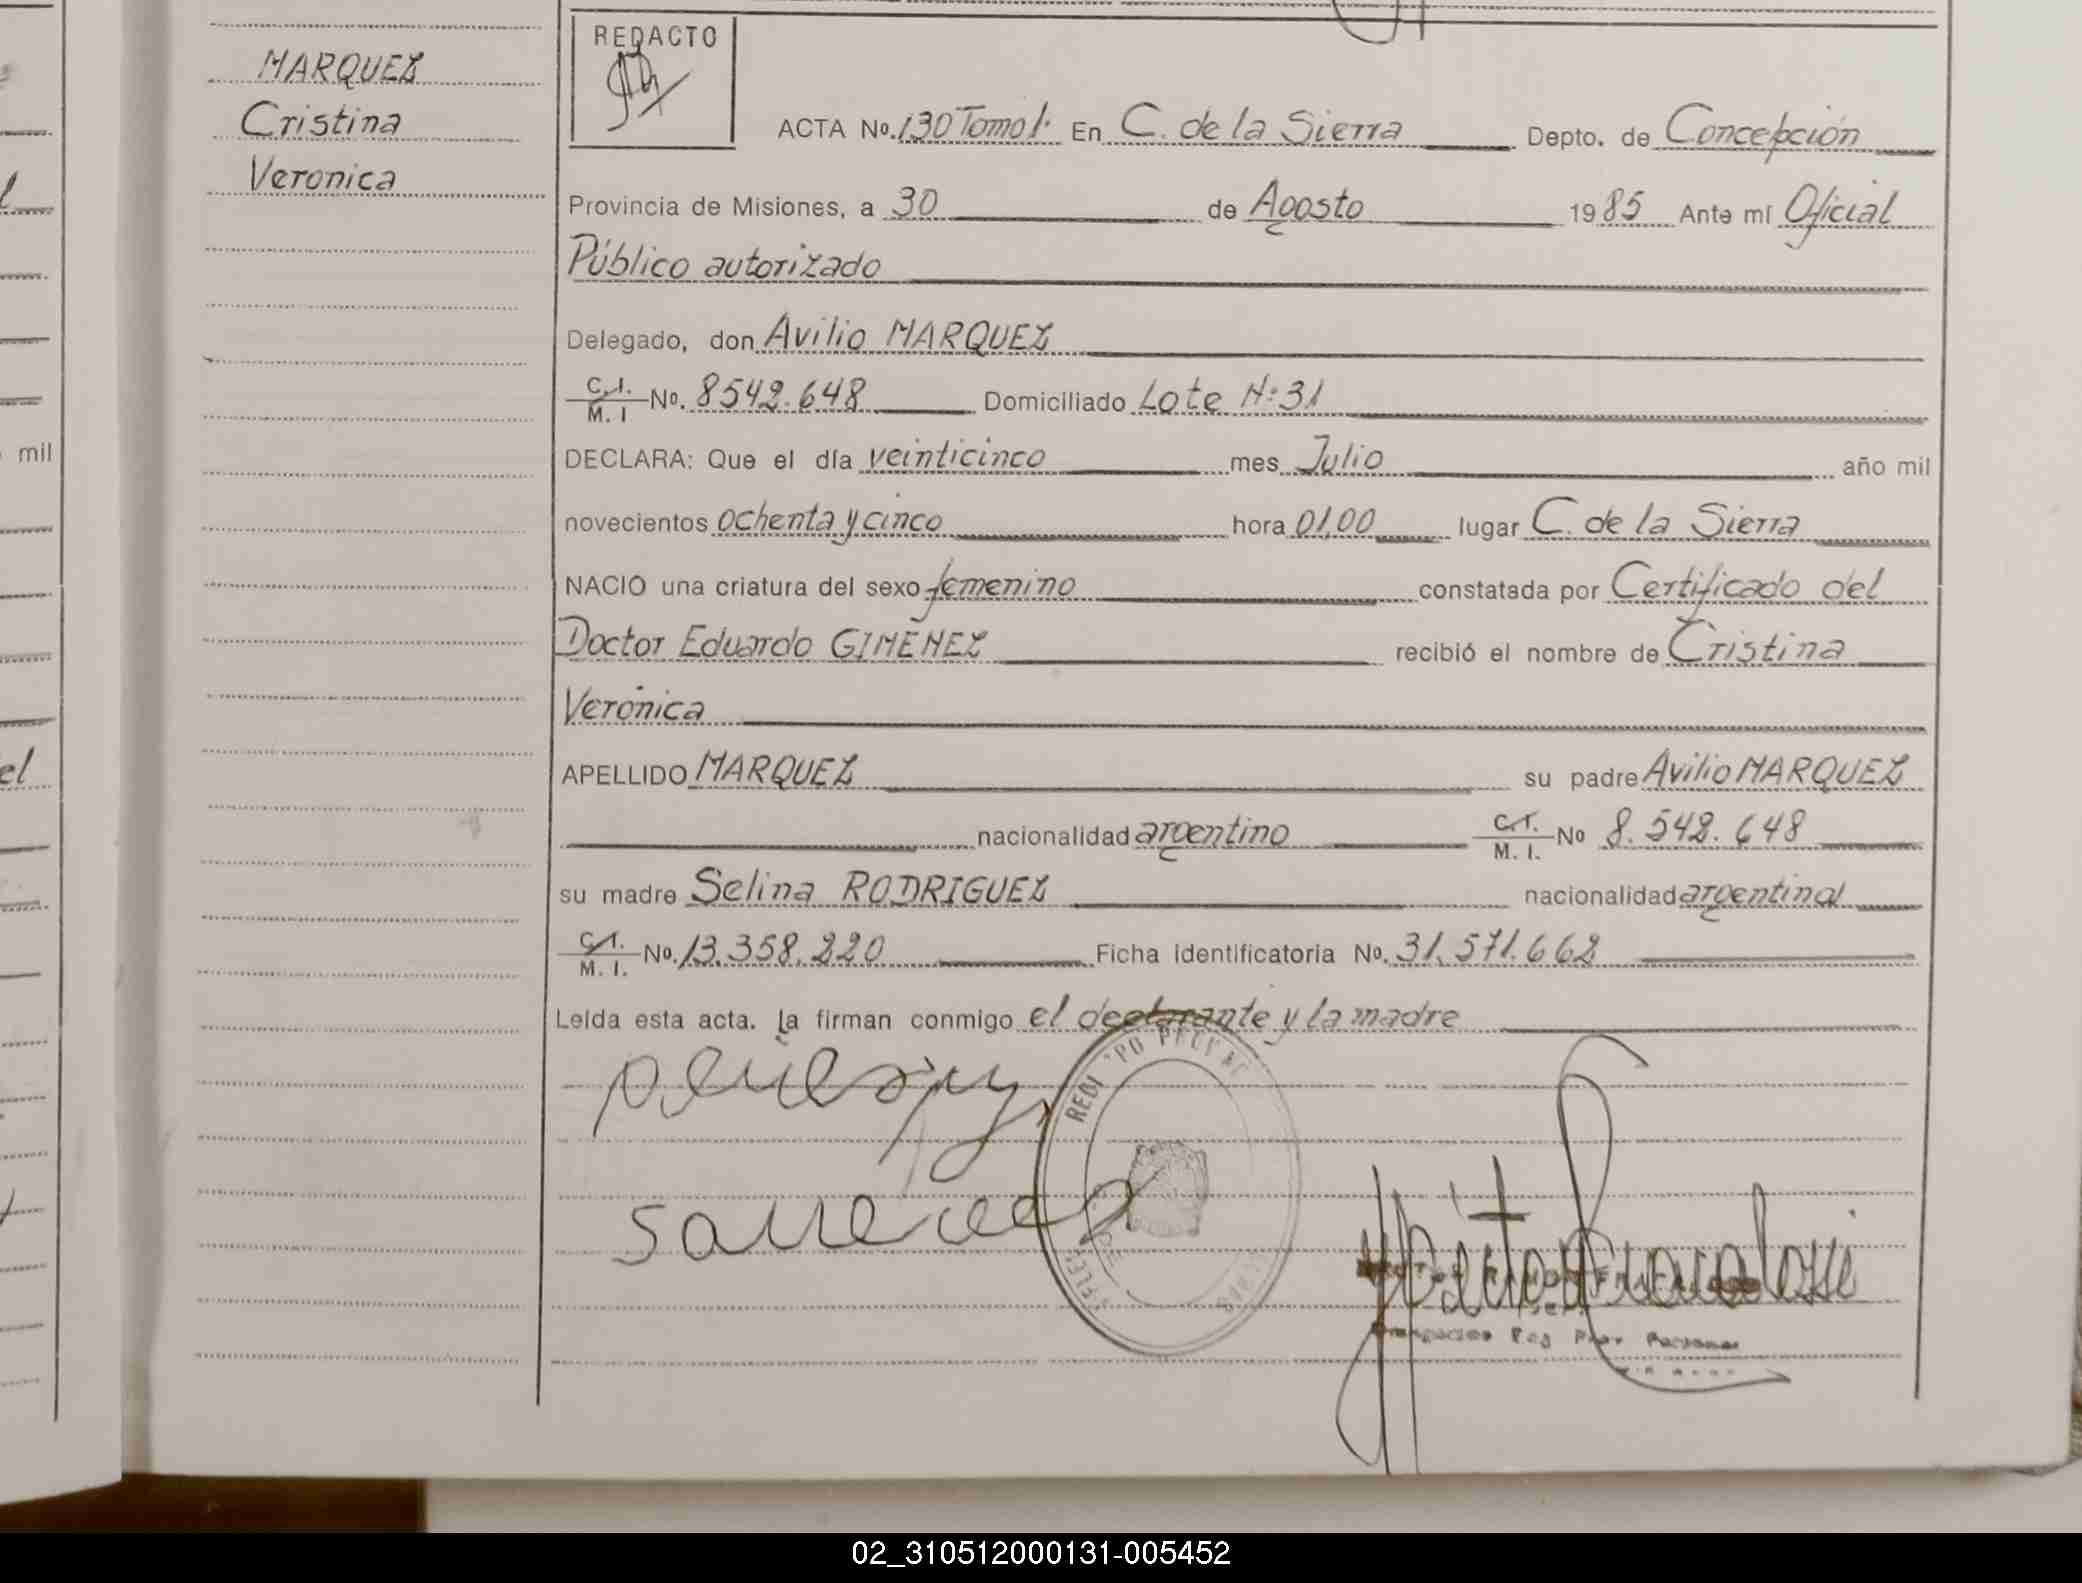 MARQUEZ
Cristina
Veronica
mil
el
REDACTO
ACTA No. 130 Tomo 1. En C. de la Sierra Depto. de Concepción
Provincia de Misiones, a 30 de Agosto 1985 Ante mí Oficial
Público autorizado
Delegado, don Avilio MARQUEZ
C.I. M.I No. 8542.648 Domiciliado Lote N:31
DECLARA: Que el día veinticinco mes Julio año mil
novecientos ochenta y cinco hora 01,00 lugar C. de la Sierra
NACIO una criatura del sexo femenino constatada por Certificado del
Doctor Eduardo GIMENEZ recibió el nombre de Cristina
Verónica
APELLIDO MARQUEZ su padre Avilio MARQUEZ
nacionalidad argentino C.I. M.I. No 8.542.648
su madre Selina RODRIGUEZ nacionalidad argentina
C.I. M.I. No. 13.358.220 Ficha identificatoria No. 31.571.662
Leída esta acta. la firman conmigo el declarante y la madre
02_310512000131-005452